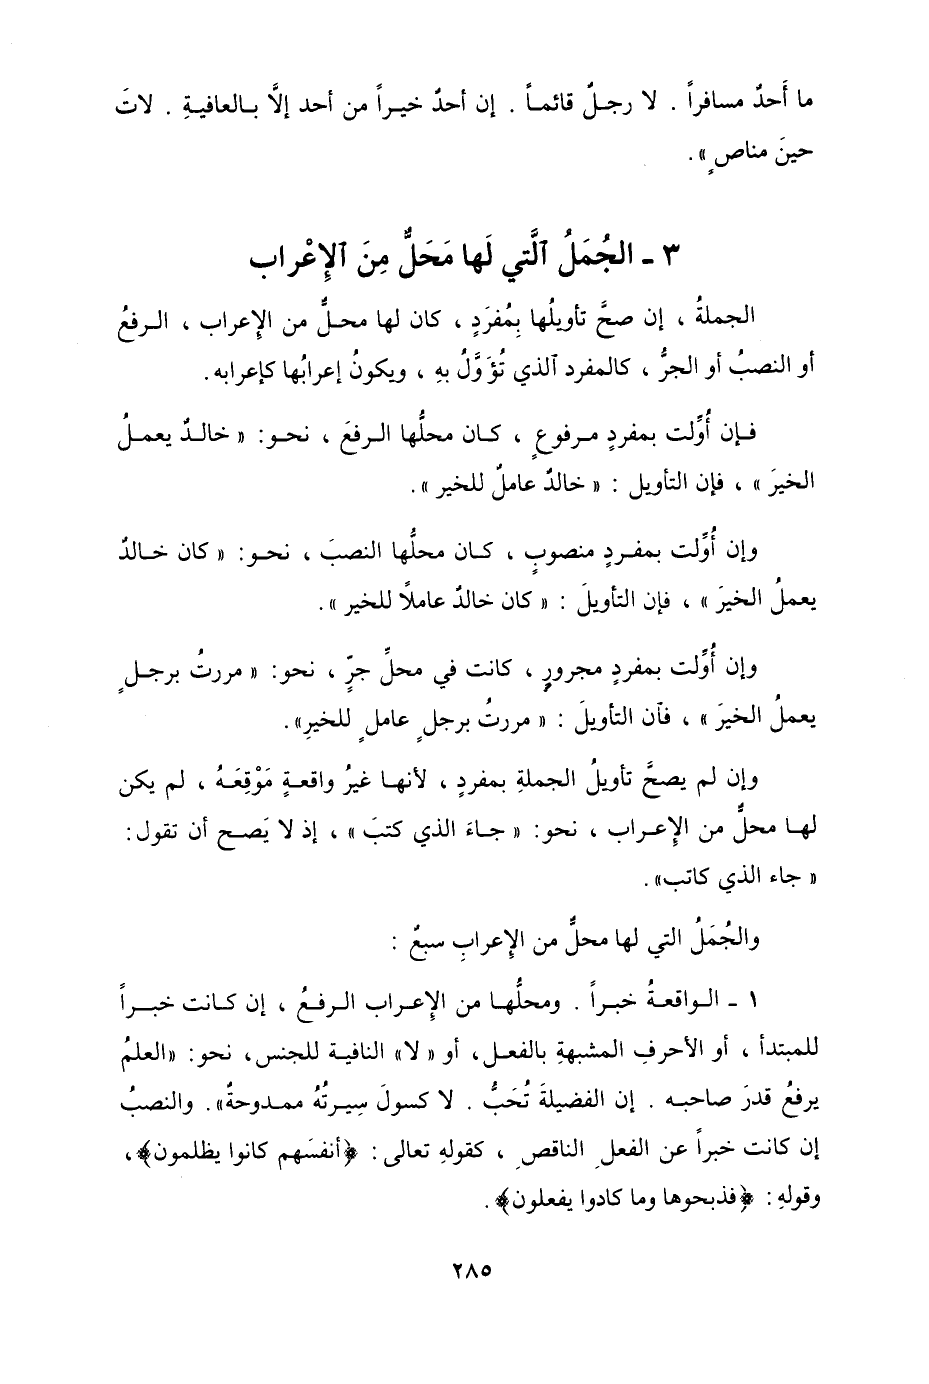 ما أَحدٌ مسافراً . لا رجلٌ قائماً . إن أحدٌ خيراً من أحد إلَّا بالعافيةِ . لاتَ
حينَ مناصٍ » .
٣ ـ الجُمَلُ ٱلَّتي لَها مَحَلٌّ مِنَ ٱلإِعْراب
الجملةُ ، إن صحَّ تأويلُها بِمُفرَدٍ ، كان لها محلٌّ من الإِعراب ، الرفعُ
أو النصبُ أو الجرُّ ، كالمفرد ٱلذي تُؤَوَّلُ بهِ ، ويكونُ إعرابُها كإعرابه .
فإن أُوِّلت بمفردٍ مرفوعٍ ، كان محلُّها الرفعَ ، نحو : « خالدٌ يعملُ
الخيرَ » ، فإن التأويل : « خالدٌ عاملٌ للخير » .
وإن أُوِّلت بمفردٍ منصوبٍ ، كان محلُّها النصبَ ، نحو : « كان خالدٌ
يعملُ الخيرَ » ، فإن التأويلَ : « كان خالدٌ عاملاً للخير » .
وإن أُوِّلت بمفردٍ مجرورٍ ، كانت في محلِّ جرٍّ ، نحو : « مررتُ برجلٍ
يعملُ الخيرَ » ، فآن التأويلَ : « مررتُ برجلٍ عاملٍ للخيرِ» .
وإن لم يصحَّ تأويلُ الجملةِ بمفردٍ ، لأنها غيرُ واقعةٍ مَوْقِعَهُ ، لم يكن
لها محلٌّ من الإِعراب ، نحو : « جاءَ الذي كتبَ » ، إذ لا يَصح أن تقول :
« جاء الذي كاتب» .
والجُمَلُ التي لها محلٌّ من الإِعرابِ سبعٌ :
١ ـ الواقعةُ خبراً . ومحلُّها من الإِعراب الرفعُ ، إن كانت خبراً
للمبتدأ ، أو الأحرفِ المشبهةِ بالفعل، أو « لا» النافية للجنس، نحو : «العلمُ
يرفعُ قدرَ صاحبه . إن الفضيلةَ تُحَبُّ . لا كسولَ سِيرتُهُ ممدوحةٌ» . والنصبُ
إن كانت خبراً عن الفعلِ الناقصِ ، كقولهِ تعالى : ﴿أنفسَهم كانوا يظلمون﴾ ،
وقولهِ : ﴿فذبحوها وما كادوا يفعلون﴾ .
٢٨٥